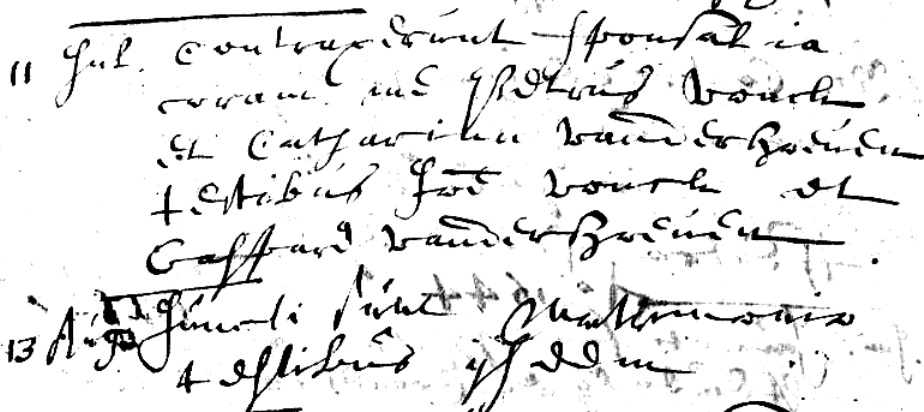 11 Jul. Contraxerunt sponsalia
coram me Petrus Vonck
et Catharina Vanderhreven
testibus Joe Vonck et
Gaspare Vanderhreven.
13 Aug Juncti sunt Matrimonio
testibus ijsdem